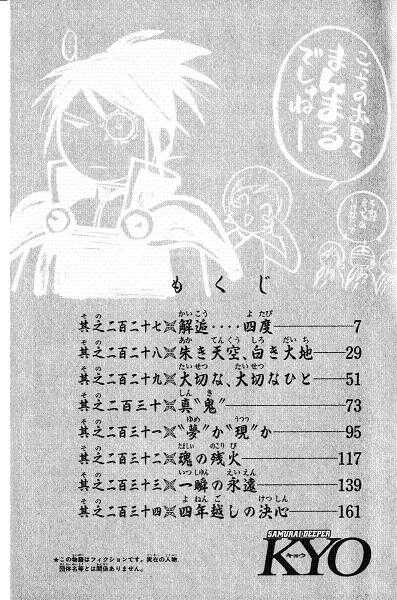 こちらのお目々
まんまる
でしゅねー
もくじ
其之二百二十七 解逅‥‥四度 7
其之二百二十八 朱き天空、白き大地 29
其之二百二十九 大切な、大切なひと 51
其之二百三十 真“鬼” 73
其之二百三十一 “夢”か“現”か 95
其之二百三十二 魂の残火 117
其之二百三十三 一瞬の永遠 139
其之二百三十四 四年越しの決心 161
SAMURAI DEEPER
KYO
キョウ
★この物語はフィクションです。実在の人物、
団体名等とは関係ありません。